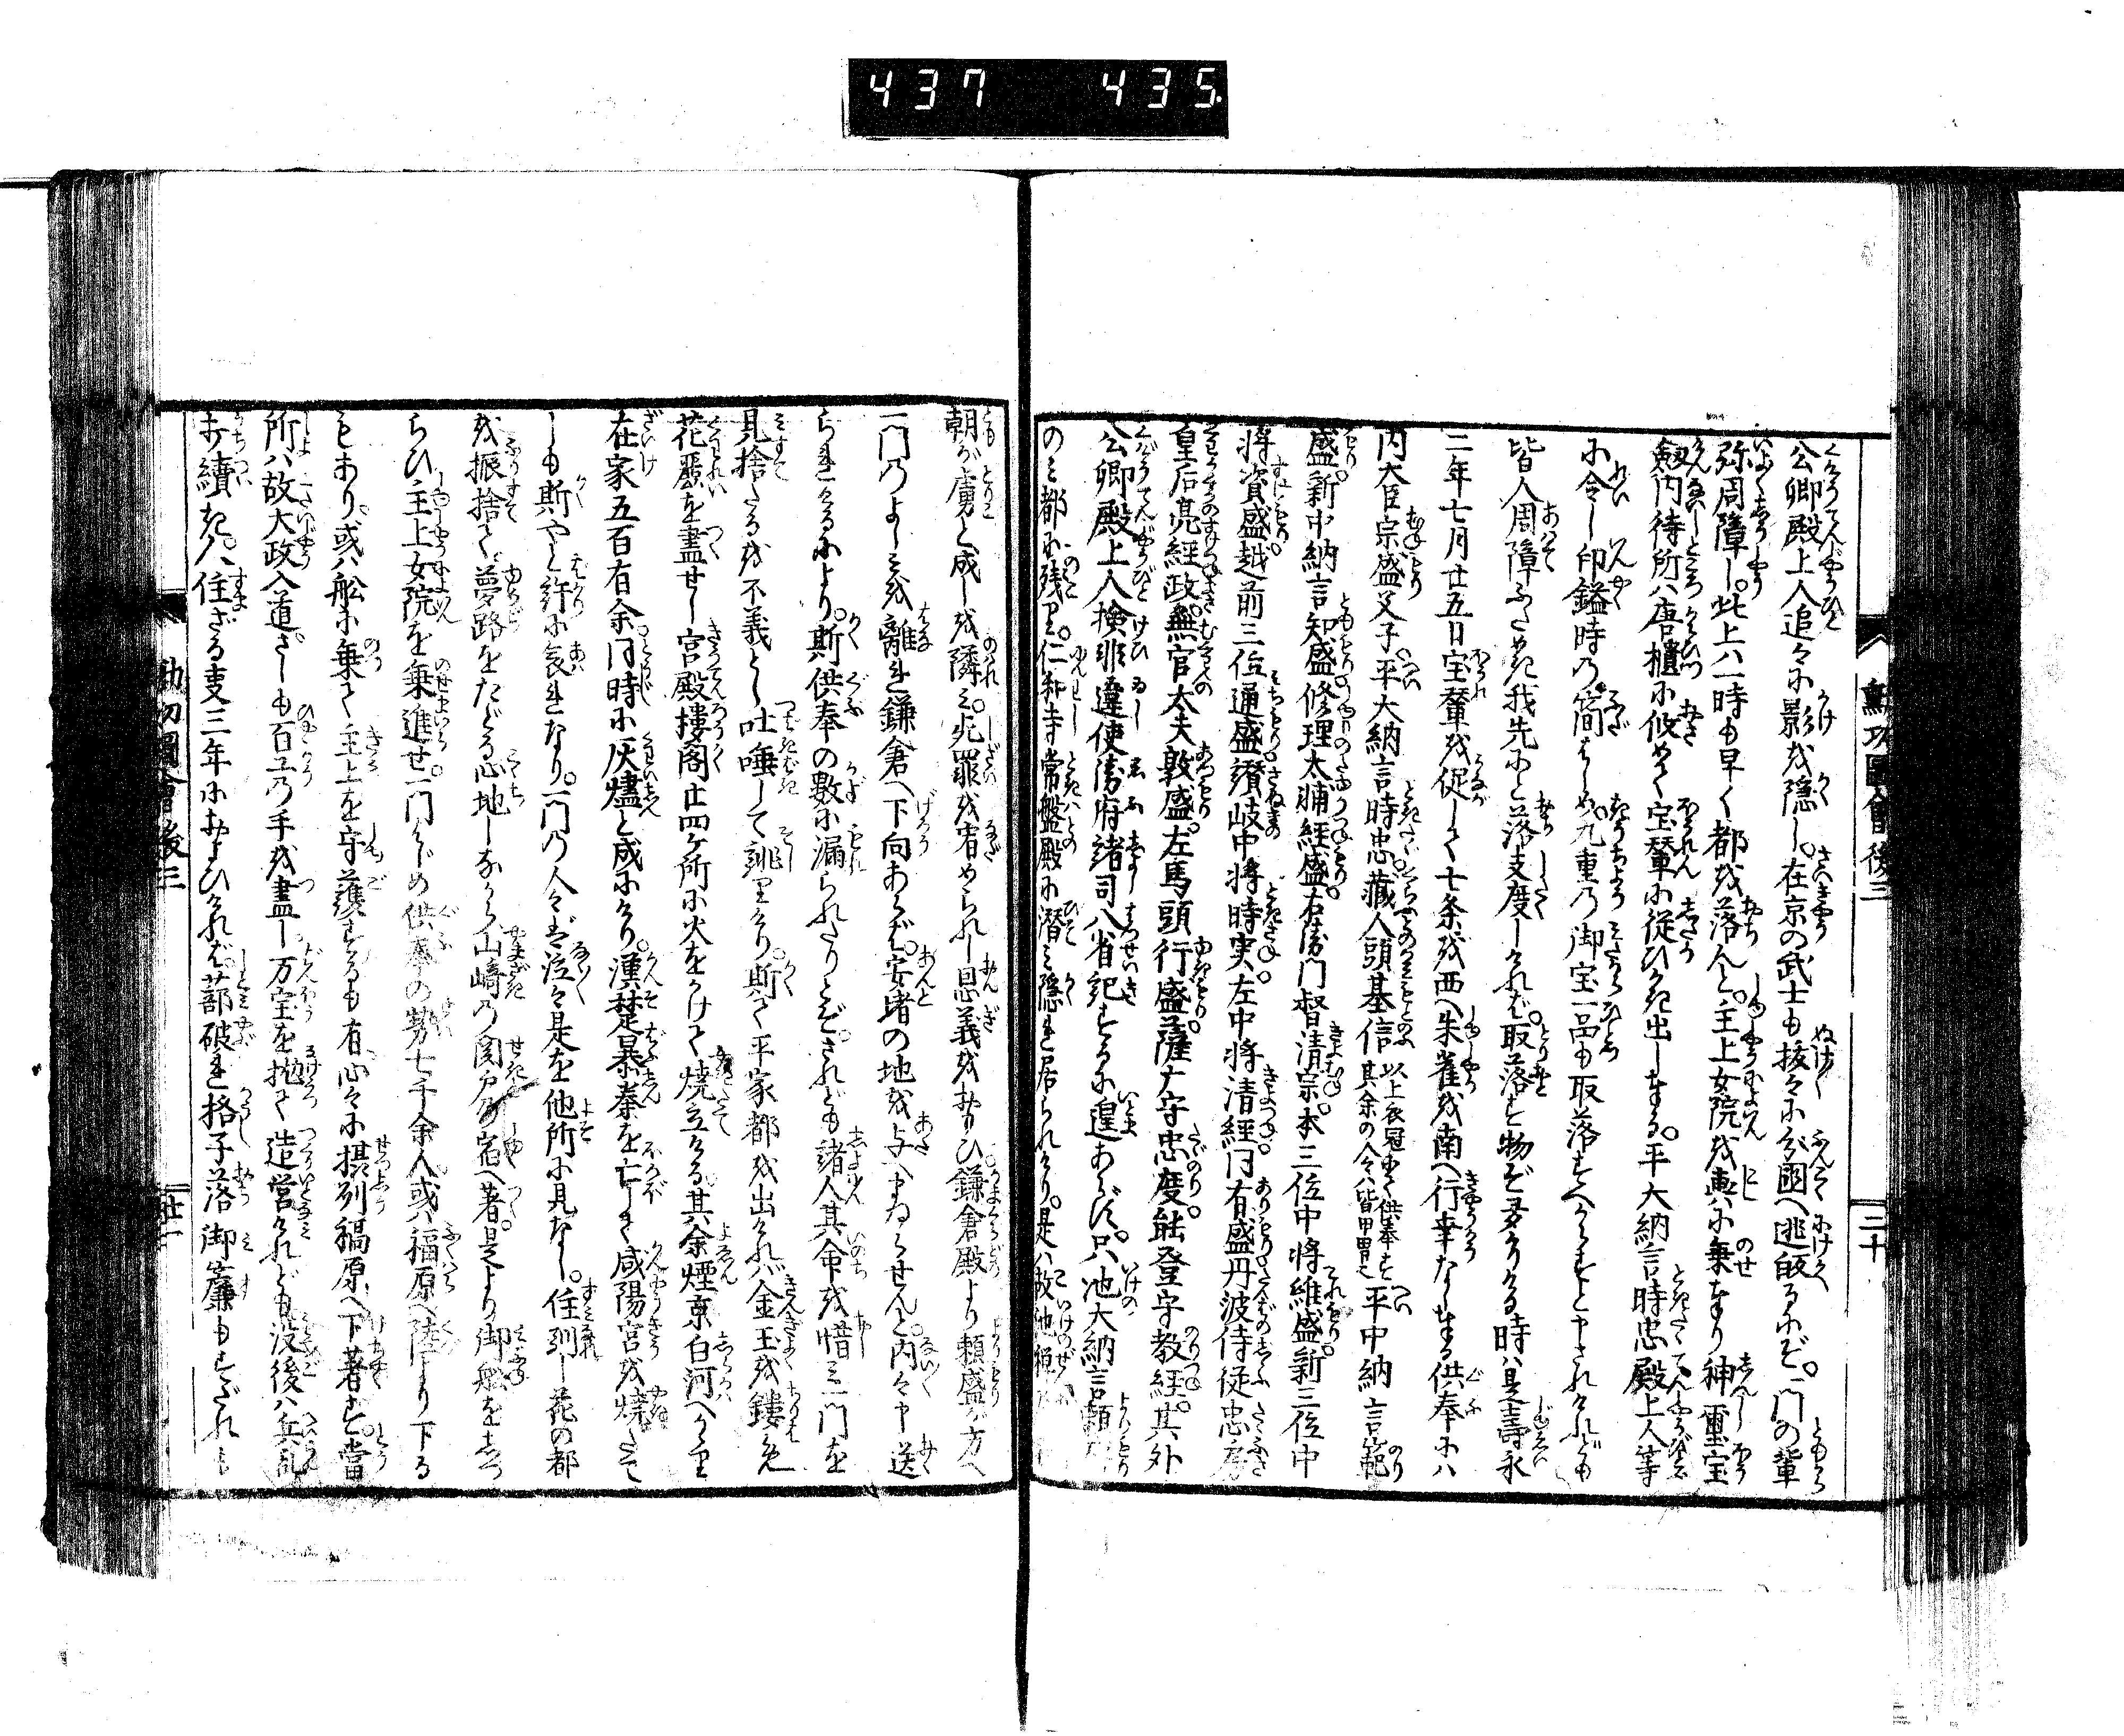 437 435
勲功圖會後三
二十
公卿殿上人追々に影を隠し。在京の武士も拔々に分國へ逃皈るにぞ。一門の輩
弥周障し。此上ハ一時も早く都を落んと。主上女院を輿に乗せ奉り神璽宝
劔内侍所ハ唐櫃に收めて宝輦に従ひ出し奉る。平大納言時忠殿上人等
に令し印鎰時の簡をはじめ。九重の御宝一品も取落すべからずと申されけれども
皆人周障ふためき我先にと落支度しけれバ。取落す物ぞ多かりける時ハ是壽永
二年七月廿五日宝輦を促して七条を西へ朱雀を南へ行幸なし奉る供奉にハ
内大臣宗盛父子平大納言時忠。藏人頭基信以上衣冠にて供奉す其余の人々ハ皆甲冑也平中納言範
盛。新中納言知盛修理太輔経盛。右衛門督清宗。本三位中将維盛。新三位中
将資盛越前三位通盛。讃岐中将時実。左中将清経。同有盛丹波侍従忠房
皇后亮経政。無官太夫敦盛。左馬頭行盛。薩广守忠度。能登守教経。其外
公卿殿上人檢非違使衛府諸司八省
のミ都に残り。仁和寺常盤殿に潜ミ隠れ居られけり。是ハ故池禅
朝が虜と成しを隣ミ。死罪を宥められし恩義をおもひ鎌倉殿より頼盛が方へ
一門のよしミを離れ鎌倉へ下向あらバ。安堵の地を与へまゐらせんと。内々申送
られけるにより。斯供奉の数に漏られたりとぞ。されども諸人其命を惜ミ一門を
見捨たるを不義とし吐唾して誹りけり。斯て平家都を出けれバ金玉を鏤め
花麗を盡せし宮殿樓閣廿四ヶ所に火をかけて焼立ける其余煙京白河へかゝり
在家五百有余同時に灰燼と成にけり。漢楚暴秦を亡して咸陽宮を焼たて
しも斯やと許に哀れなり。一門の人々ハ泣々是を他所に見なし。住馴し花の都
を振捨て。夢路をたどる心地しながら山崎の関戸の宿へ著。是より御舩をしつ
らひ主上女院を乗進せ。一門をはじめ供奉の勢七千余人或ハ福原へ陸より下る
もあり。或ハ舩に乗て主上を守護するも有心々に摂州福原へ下著す。當
所ハ故大政入道。さしも百工の手を盡し万宝を抛て造営けれども没後ハ兵乱
打續き。人住ざる事三年におよひけれバ。蔀破れ格子落御簾もすだれも
勲功圖會後三
廿一